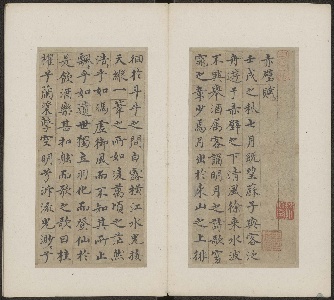 赤壁賦
壬戌之秋七月既望蘇子與客泛
舟遊于赤壁之下清風徐來水波
不興舉酒属客誦明月之詩歌窈
窕之章少焉月出於東山之上徘
徊於斗牛之間白露橫江水光接
天縱一葦之所如凌萬頃之茫然
浩乎如馮虛御風而不知其所止
飄乎如遺世獨立羽化而登仙於
是飲酒樂甚扣舷而歌之歌曰桂
棹兮蘭槳擊空明兮泝流光渺兮